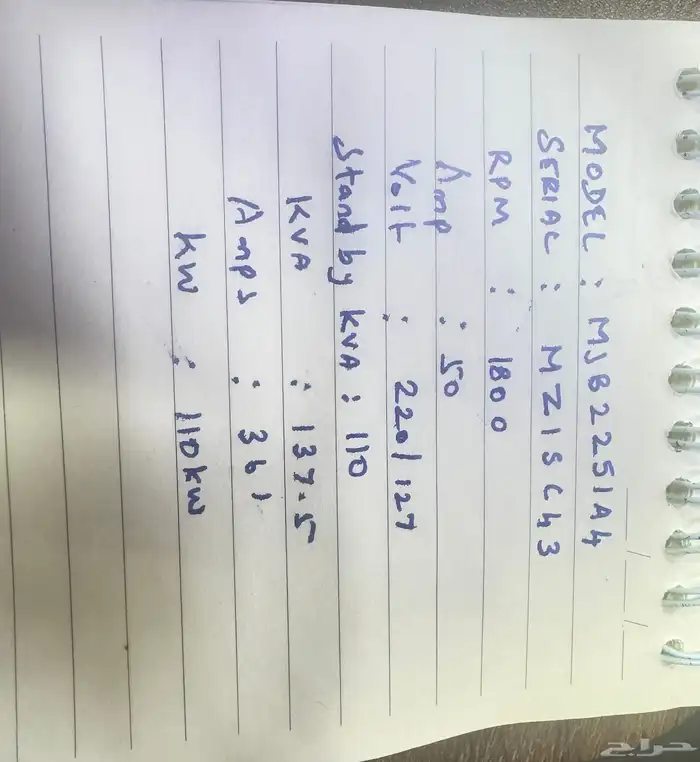 MODEL : MJB225IA4
SERIAL : MZ1SC43
RPM : 1800
Amp : 50
Volt : 220/127
Stand by KVA : 110
KVA : 137.5
Amps : 361
kW : 110kW
حراج